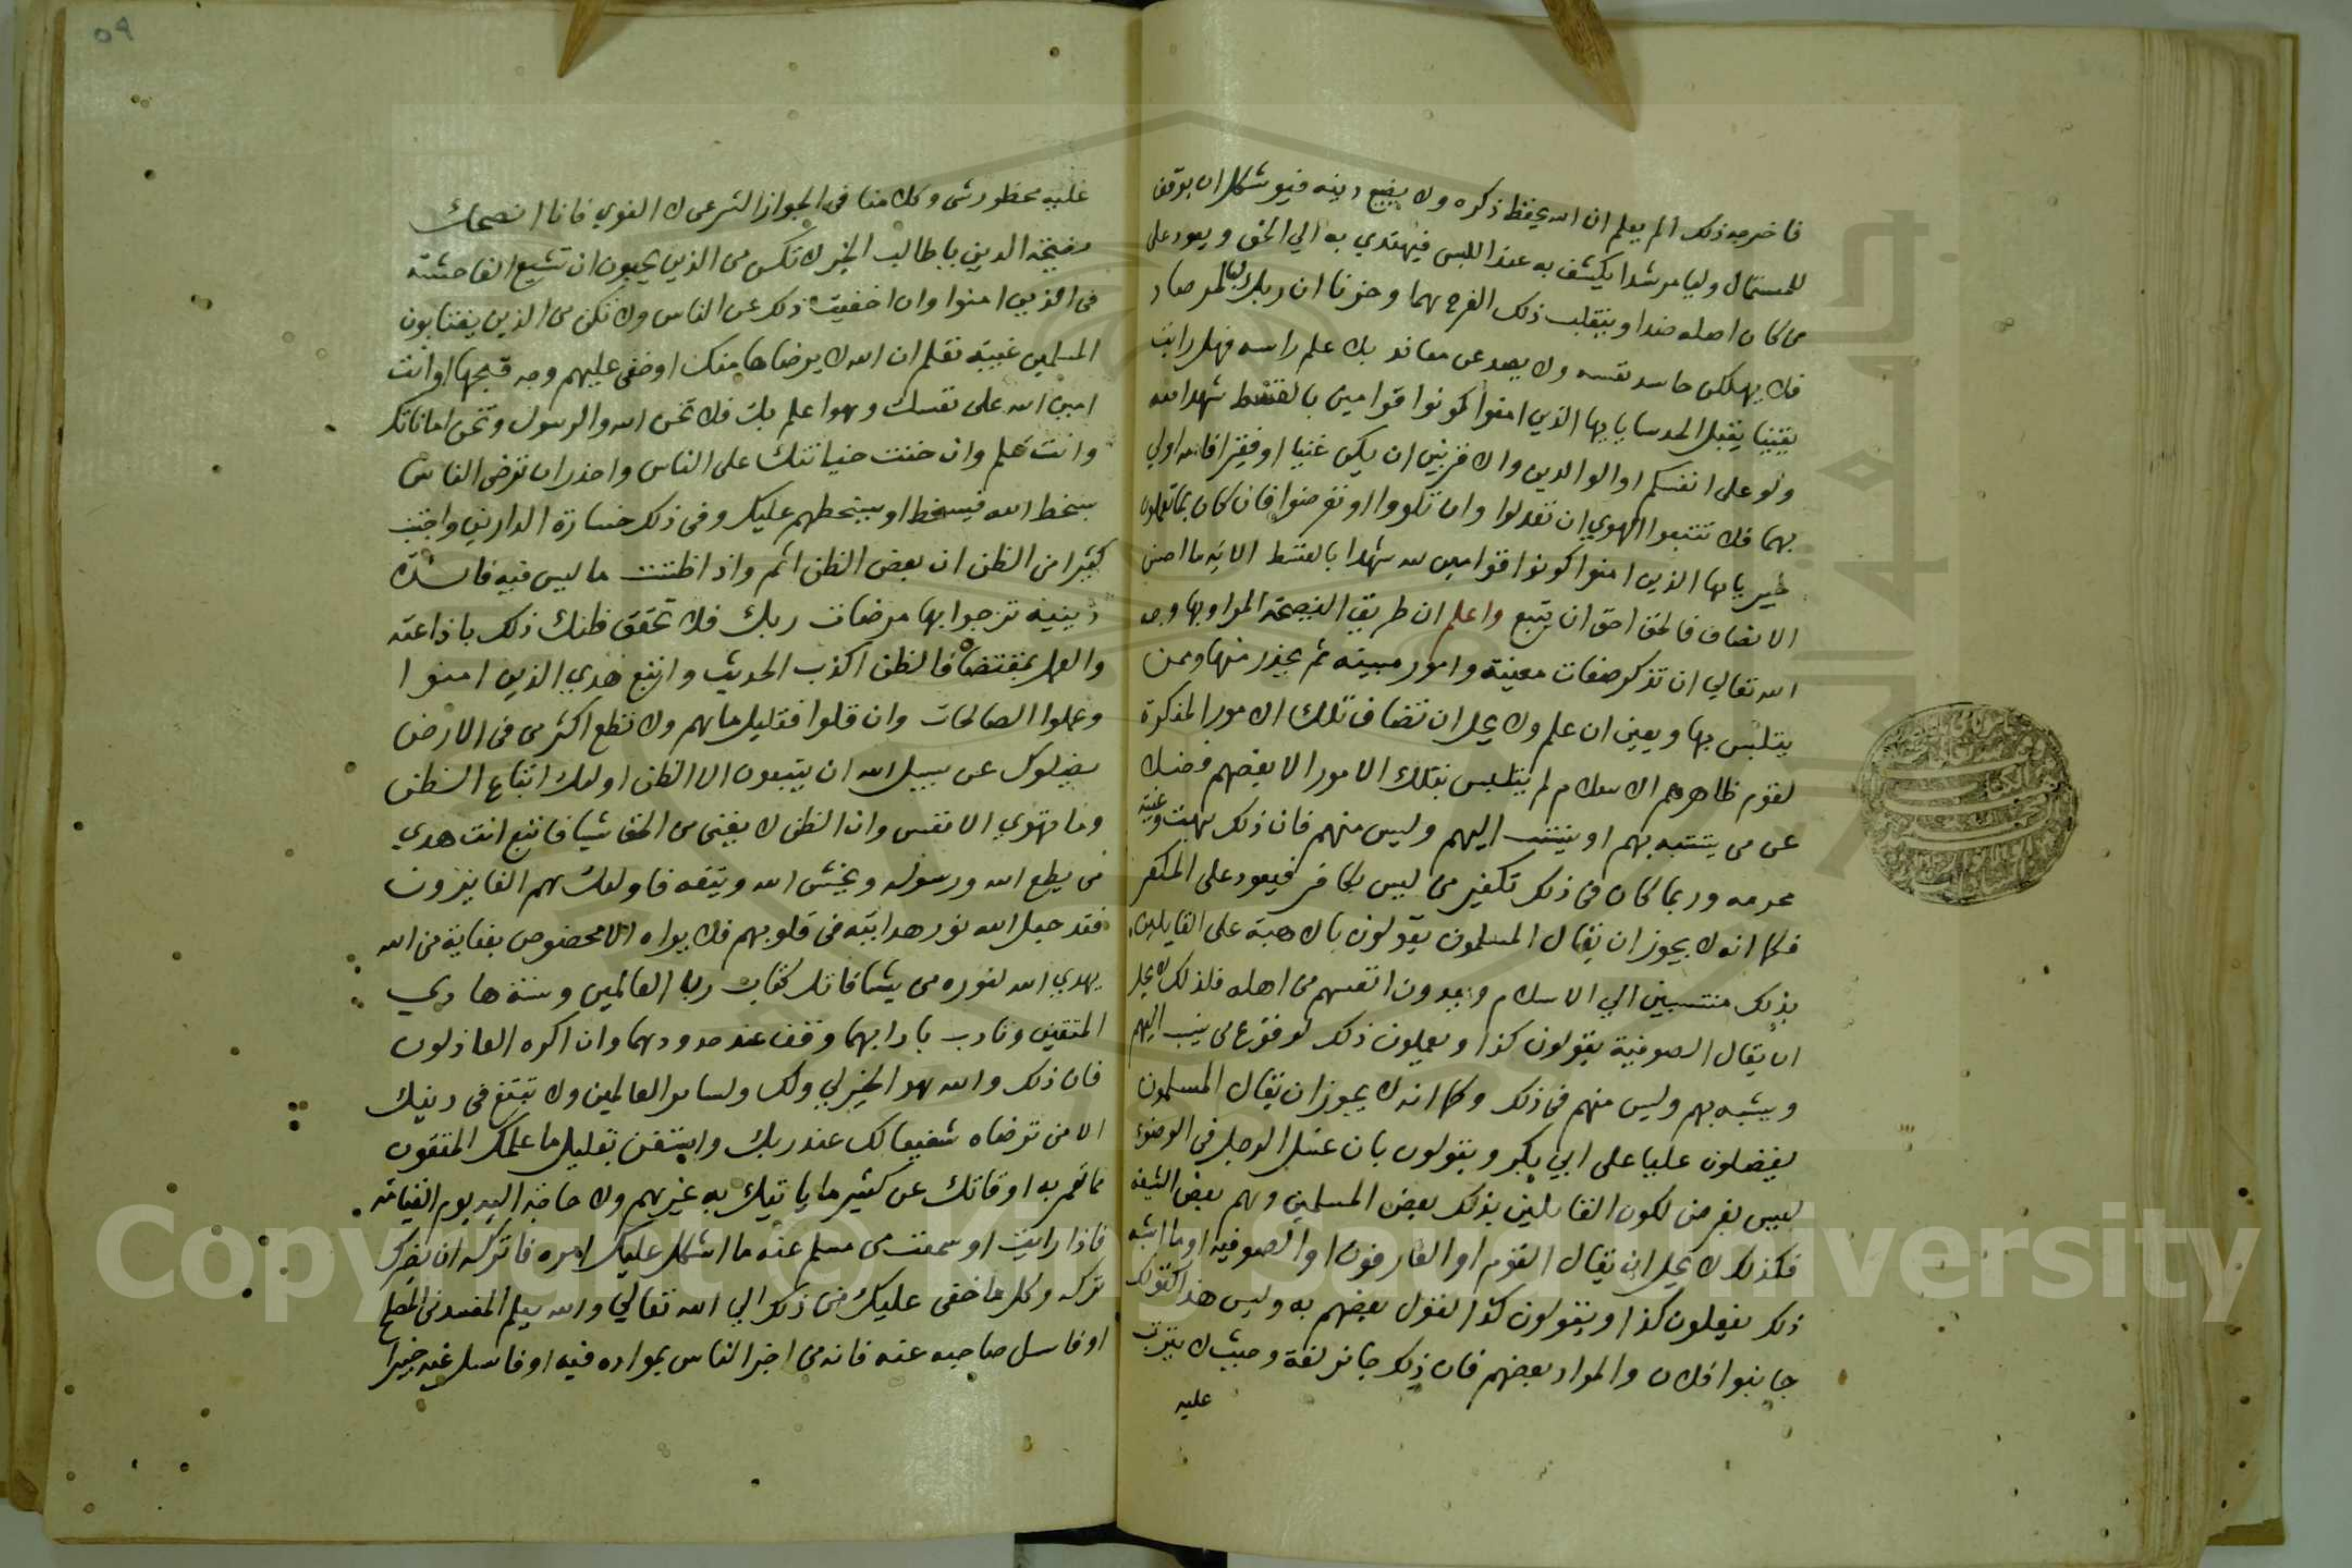 فاخرجه ذلك الم يعلم ان الله يحفظ ذكره ولا يضيع دينه فيوشك ان يوقف
للمستمال وليا مرشدا يكشف به عنه اللبس فيهتدي به الي الحق ويعود علي
من كان اصله ضدا وينقلب ذلك الفرح هما وحزنا ان ربك لبالمرصاد
فلا يهلكن حاسد نفسه ولا يصد عن معاند بل علم راسه فهل رايت
يقينا يقبل الحدس يا يها الذين امنوا كونوا قوامين بالقسط شهدا لله
ولو علي انفسكم او الوالدين والاقربين ان يكن غنيا او فقيرا فالله اولي
بهما فلا تتبعوا الهوي ان تعدلوا وان تلووا او تعرضوا فان كان بما تعملون
خبير يا يها الذين امنوا كونوا قوامين لله شهدا بالقسط الايه ما احسن
الانصاف فالحق احق ان يتبع واعلم ان طريق النصيحة المراد بها وجه
الله تعالي ان تذكر صفات معينة وامور مبينه ثم يحذر منها وممن
يتلبس بها ويعين ان علم ولا يحل ان تضاف تلك الامور المنكرة
لقوم ظاهرهم الاسلام لم يتلبس بتلك الامور الا بعضهم فضلا
عن من يتشبه بهم او ينتسب اليهم وليس منهم فان ذلك بهت وغيبة
محرمه وربما كان في ذلك تكفير من ليس بكافر فيعود علي المكفر
فكما انه لا يجوز ان يقال المسلمون يقولون بالاهية علي القايلين
بذلك منتسبين الي الاسلام ويعدون انفسهم من اهله فلذلك لا يحل
ان يقال الصوفية يقولون كذا ويعملون ذلك لوقوع من ينسب اليهم
ويشبه بهم وليس منهم في ذلك وكما انه لا يجوز ان يقال المسلمون
يفضلون عليا علي ابي بكر ويقولون بان غسل الرجل في الوضوء
ليس بفرض لكون القايلين بذلك بعض المسلمين وهم بعض الشيعه
فكذلك لا يحل ان يقال القوم او العارفون او الصوفيه او ما اشبه
ذلك يفعلون كذا ويقولون كذا لقول بعضهم به وليس هذا كقولك
جا بنوا فلان والمراد بعضهم فان ذلك جائز لغة وحيث لا يترتب
عليه
٥٩
عليه محظور شي وكلامنا في الجواز الشرعي لا اللغوي فانا انصحك
نصيحة الدين يا طالب الخير لا تكن من الذين يحبون ان تشيع الفاحشة
في الذين امنوا وان اخفيت ذلك عن الناس ولا تكن من الذين يغتابون
المسلمين غيبة تعلم ان الله لا يرضاها منك او خفي عليهم وجه قبحها وانت
امين الله علي نفسك وهو اعلم بك فلا تخن الله والرسول وتخن اماناتك
وانت تعلم وان خفت خيانتك علي الناس واحذر ان ترضي الناس
بسخط الله فيسخط او يسخطهم عليك وفي ذلك خسارة الدارين واجتنب
كثيرا من الظن ان بعض الظن اثم واذا ظننت ما ليس فيه فائدة
دينية ترجوا بها مرضات ربك فلا تحقق ظنك ذلك باذاعته
والعمل بمقتضاه فالظن اكذب الحديث واتبع هدي الذين امنوا
وعملوا الصالحات وان قلوا فقليل ما هم ولا تطع اكثر من في الارض
يضلوك عن سبيل الله ان يتبعون الا الظن اولئك اتباع الظن
وما تهوي الانفس وان الظن لا يغني من الحق شيا فاتبع انت هدي
من يطع الله ورسوله ويخش الله ويتقه فاولئك هم الفايزون
فقد جعل الله نور هدايته في قلوبهم فلا يراه الا مخصوص بعناية من الله
يهدي الله لنوره من يشا فاتل كتاب رب العالمين وسنة هادي
المتقين وتادب بادابهما وقف عند حدودهما وان اكره العاذلون
فان ذلك والله هو الخير لي ولك ولساير العالمين ولا تتبع في دينك
الا من ترضاه شفيعا لك عند ربك واستغن بقليل ما علمك المتقون
فاعمر به اوقاتك عن كثير ما ياتيك به غيرهم ولا حاجة اليه يوم القيامة
فاذا رايت او سمعت من مسلم عنه ما اشكل عليك امره فاتركه ان يضرك
تركه وكل ما خفي عليك من ذلك الي الله تعالي والله يعلم المفسد من المصلح
او فاسل صاحبه عنه فانه من اخبر الناس بمراده فيه او فاسل غيره خبيرا
Copyright © King Saud University